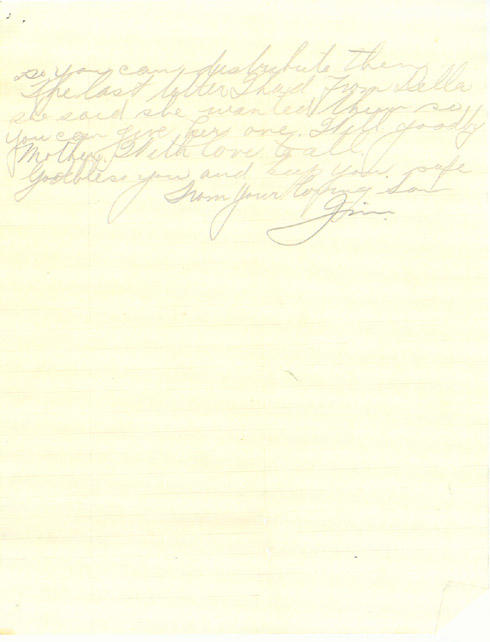 so you can distribute them
The last letter I had from Della
she said she wanted them so
you can give her one. Well goodby
Mother, With love to all.
God bless you and keep you safe
From your loving Son
Jim.